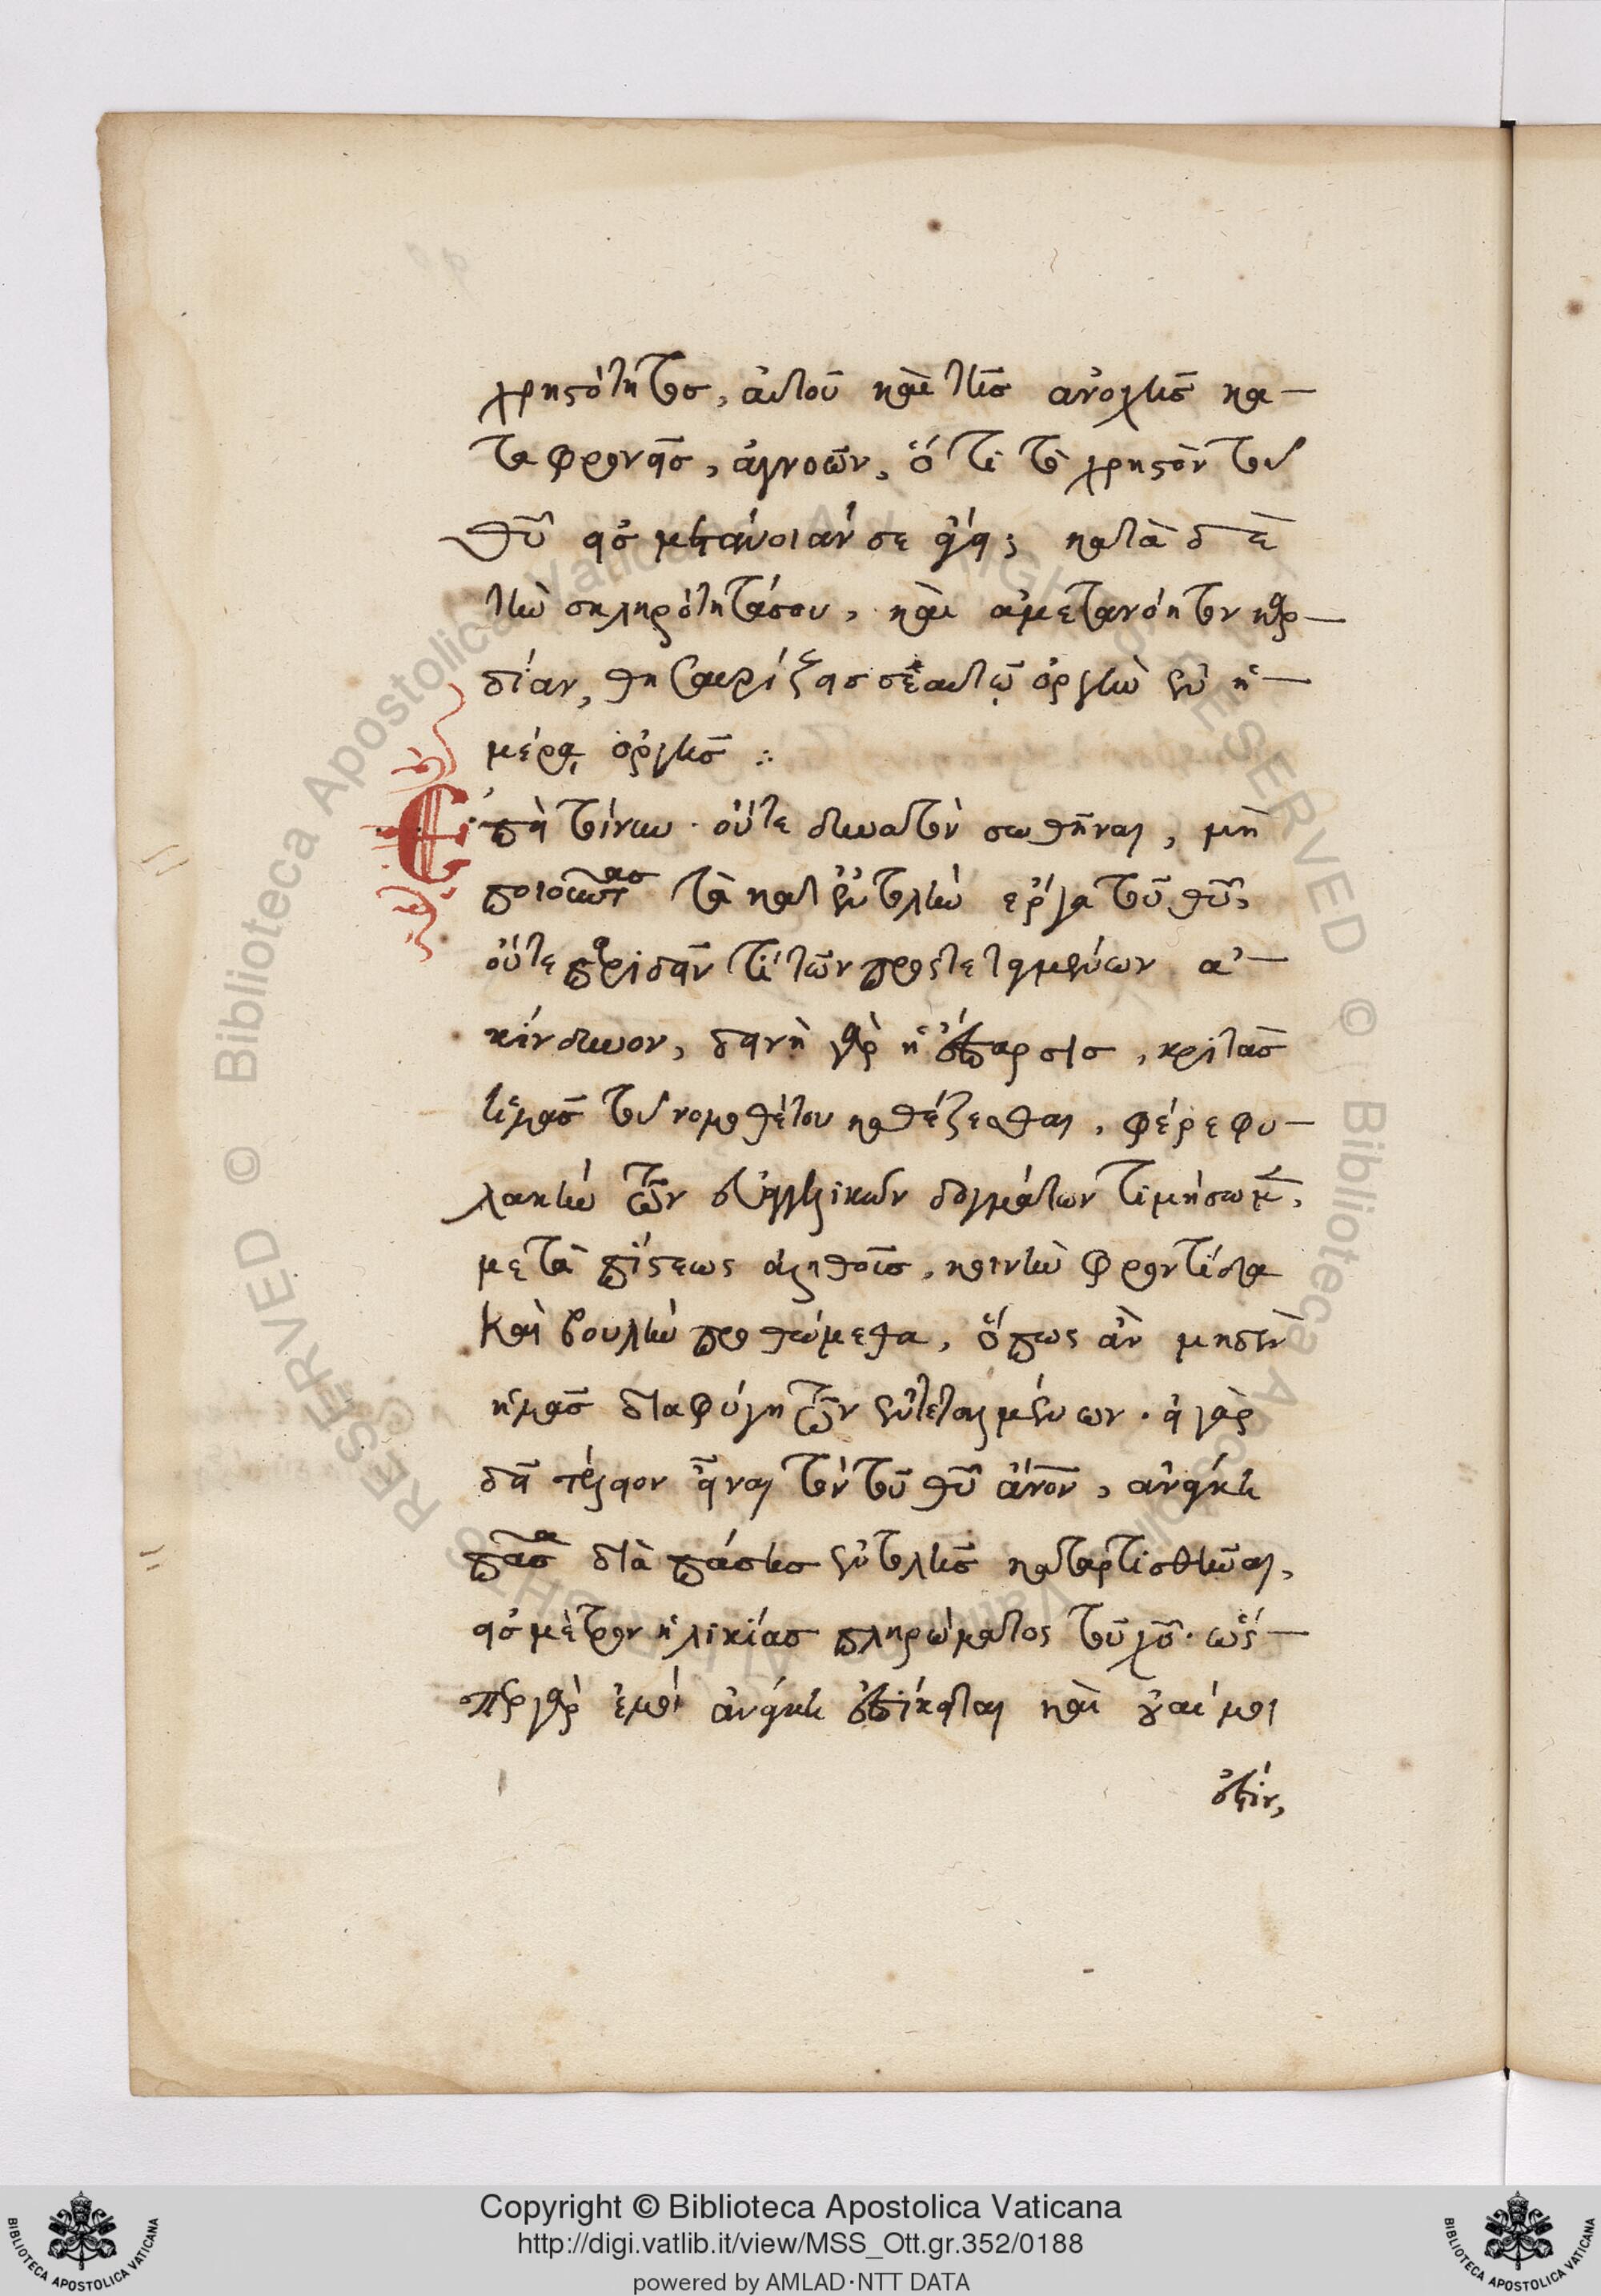 χρηστότητος, αὐτοῦ καὶ τῆς ἀνοχῆς κα-
ταφρονεῖς, ἀγνοῶν, ὅτι τὸ χρηστὸν τοῦ
θῦ εἰς μετάνοιάν σε ἄγει; κατὰ δὲ
τὴν σκληρότητά σου, καὶ ἀμετανόητον καρ-
δίαν, θησαυρίζεις σεαυτῷ ὀργὴν ἐν ἡ-
μέρᾳ ὀργῆς :
Ἐπεὶ τοίνυν · οὔτε δυνατὸν σωθῆναι, μὴ
ποιοῦντας τὰ κατ' ἐντολὴν ἔργα τοῦ θῦ,
οὔτε παριδεῖν τι τῶν προστεταγμένων ἀ-
κίνδυνον, δεινὴ γὰρ ἡ ἔπαρσις, κριτὰς
ἡμᾶς τοῦ νομοθέτου καθέζεσθαι, φέρε φυ-
λακὴν τῶν εὐαγγελικῶν δογμάτων τιμήσωμεν,
μετὰ πίστεως ἀληθοῦς, κοινὴν φροντίδα
καὶ βουλὴν προθώμεθα, ὅπως ἂν μηδὲν
ἡμᾶς διαφύγη τῶν ἐντεταλμένων · εἰ γὰρ
δεῖ τέλειον εἶναι τὸν τοῦ θῦ ἄνον, ἀνάγκη
πᾶσα διὰ πάσης ἐντολῆς καταρτισθῆναι,
εἰς μέτρον ἡλικίας πληρώματος τοῦ χῦ · ὥσ-
περ γὰρ ἐμοὶ ἀνάγκη ἐπίκειται καὶ οὐαί μοι
ἐστίν,
Copyright © Biblioteca Apostolica Vaticana
http://digi.vatlib.it/view/MSS_Ott.gr.352/0188
powered by AMLAD·NTT DATA